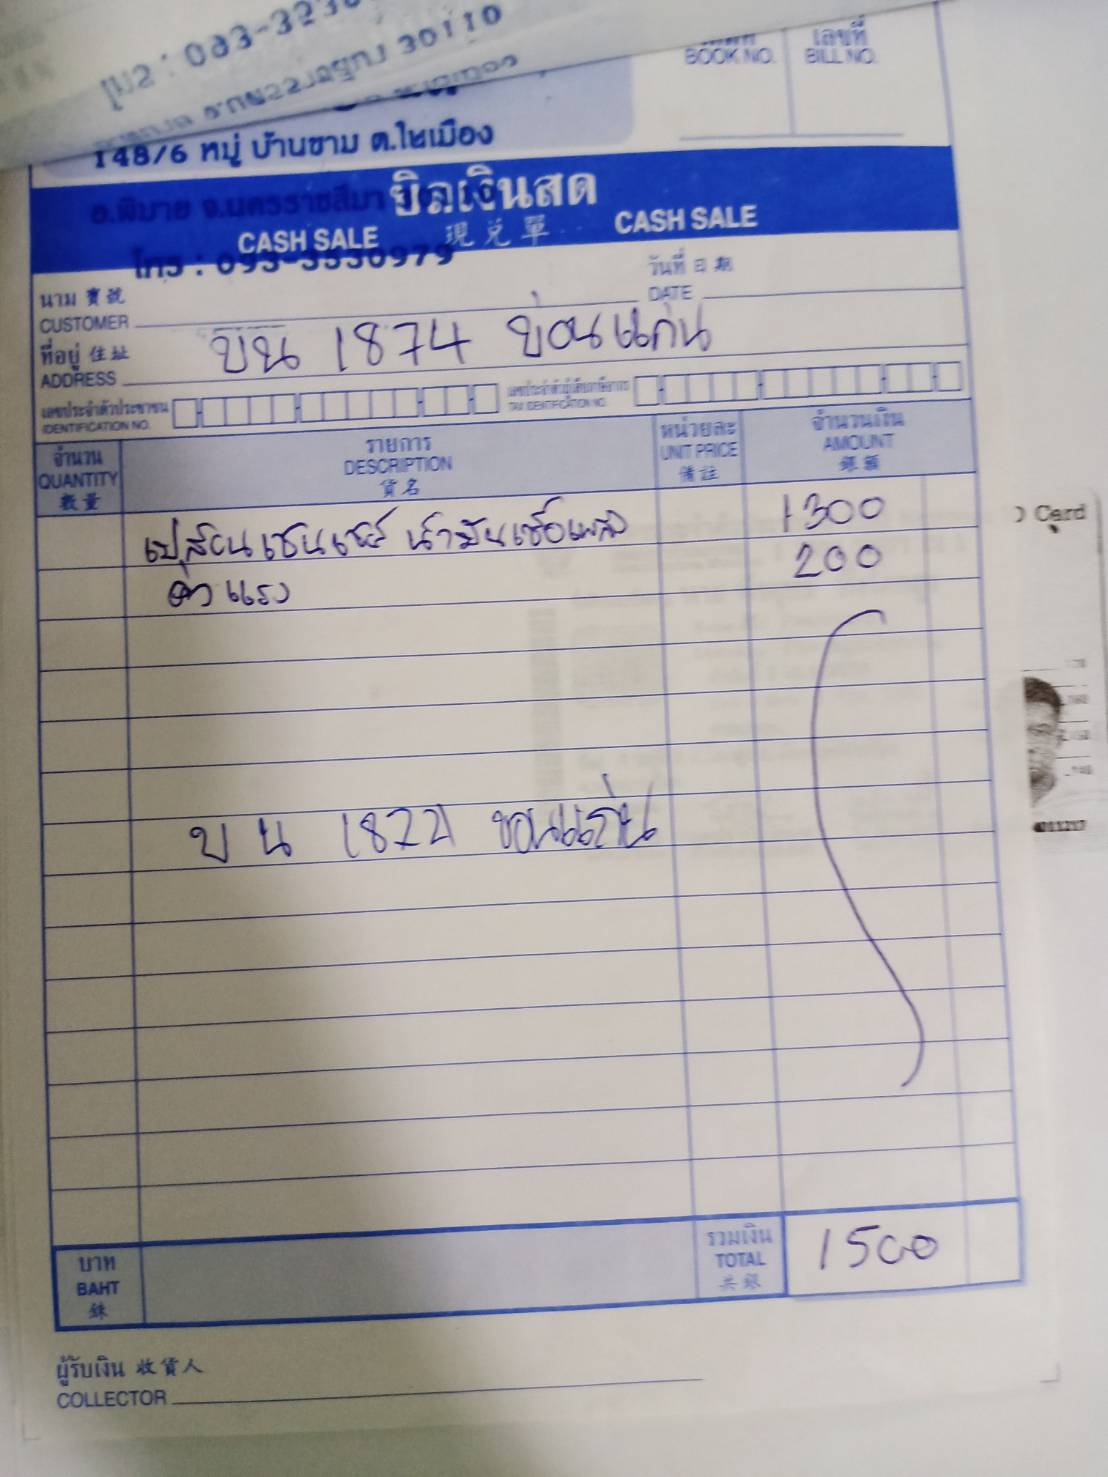 30110
BOOK NO.
เลขที่
BILL NO.
148/6 หมู่ บ้านขาม ต.ในเมือง
อ.พิมาย จ.นครราชสีมา
บิลเงินสด
CASH SALE 現兌單 CASH SALE
โทร : 093-3330979
นาม 寶號
CUSTOMER
วันที่ 日期
DATE
บน 1874 ขอนแก่น
ที่อยู่ 住址
ADDRESS
เลขประจำตัวประชาชน
IDENTIFICATION NO.
เลขประจำตัวผู้เสียภาษีอากร
TAX IDENTIFICATION NO.
จำนวน
QUANTITY
數量
รายการ
DESCRIPTION
貨名
หน่วยละ
UNIT PRICE
備註
จำนวนเงิน
AMOUNT
銀額
เปลี่ยนเซนเซอร์ น้ำมันเชื้อเพลิง 1300
ค่าแรง 200
บน 1822 ขอนแก่น
บาท
BAHT
銖
รวมเงิน
TOTAL
共銀
1500
ผู้รับเงิน 收貨人
COLLECTOR
Card